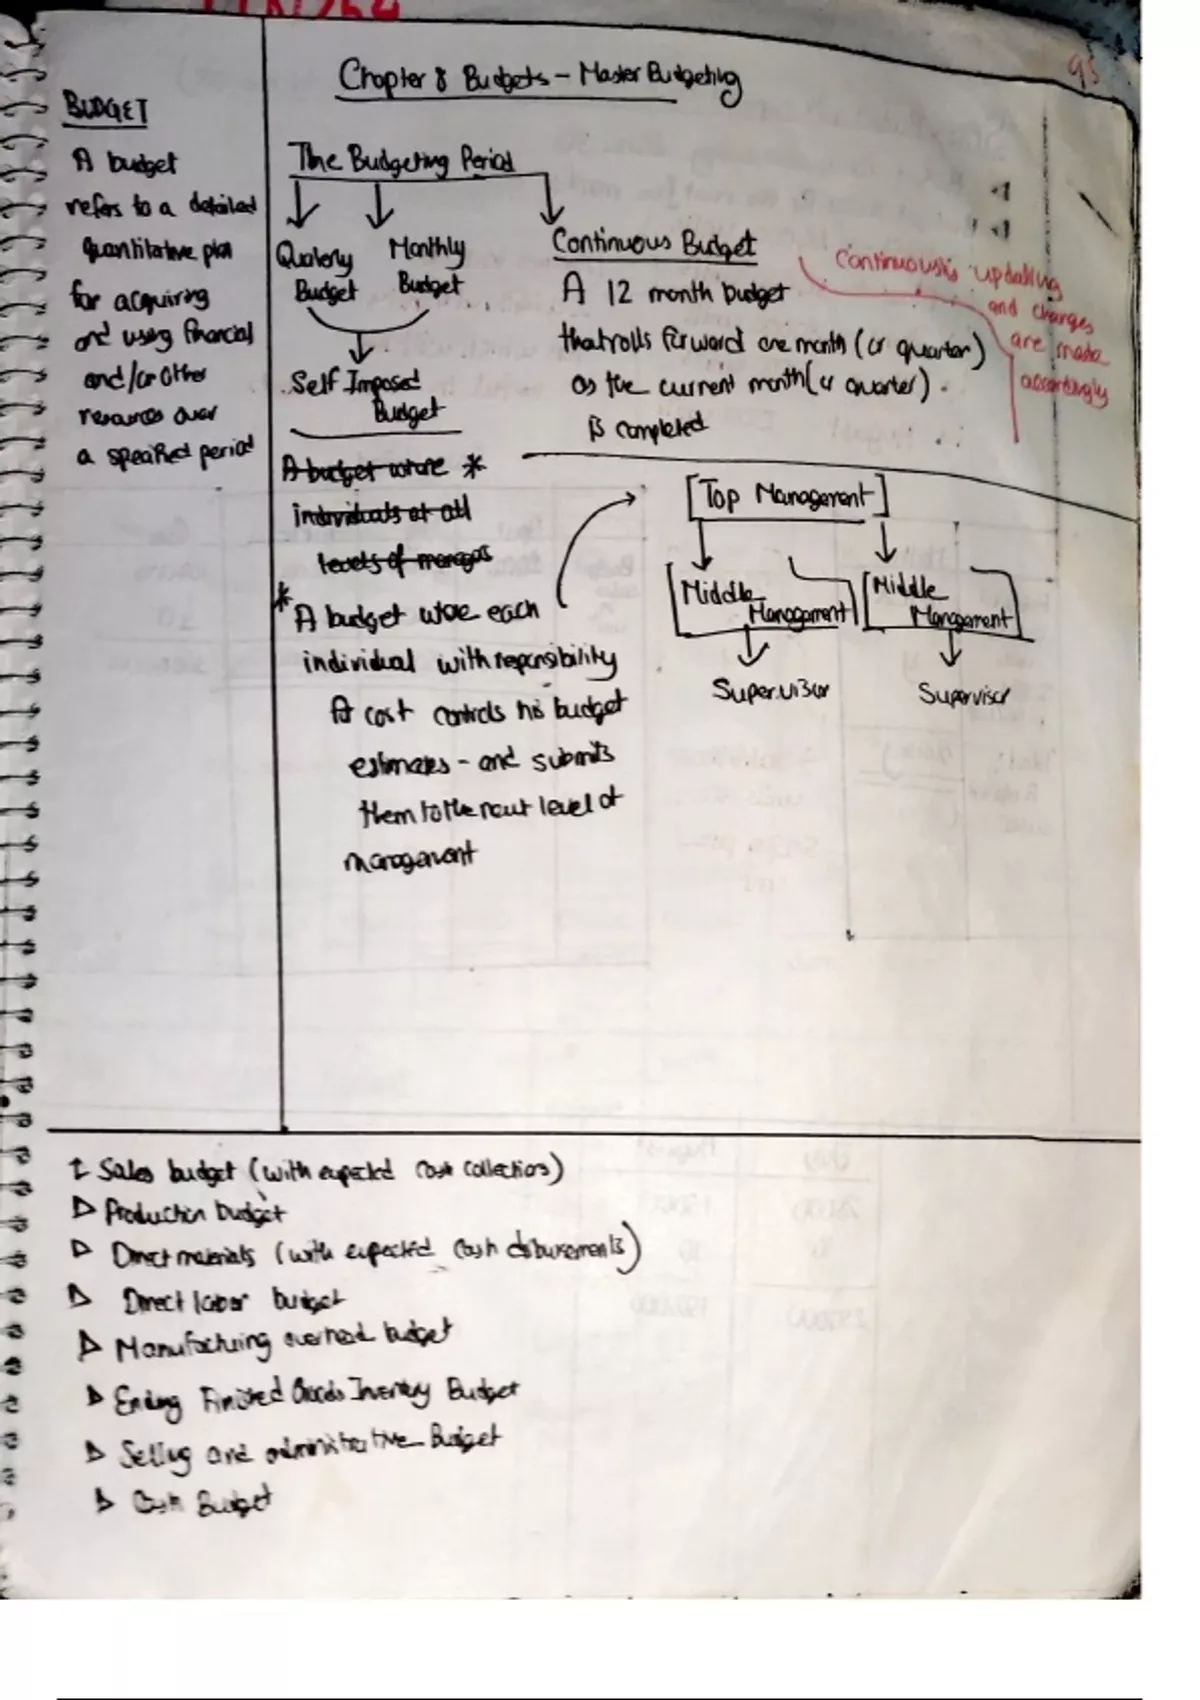 95
Chapter 8 Budgets - Master Budgeting
BUDGET
A budget
refers to a detailed
quantitative plan
for acquiring
and using financial
and/or other
resources over
a specified period
The Budgeting Period
Quaterly
Budget
Monthly
Budget
Self Imposed
Budget
A budget where *
individuals at all
levels of manages
* A budget were each
individual with reponsibility
of cost controls his budget
estimates - and submits
them to the next level of
management
Continuous Budget
A 12 month budget
that rolls forward one month (or quarter)
as the current month (or quarter).
is completed
Continuously updating
and changes
are made
accordingly
[Top Management]
Middle
Management
Middle
Management
Supervisor
Supervisor
Sales budget (with expected cash collections)
Production budget
Direct materials (with expected cash disbursements)
Direct labor budget
Manufacturing overhead budget
Ending Finished Goods Inventory Budget
Selling and administrative Budget
Cash Budget